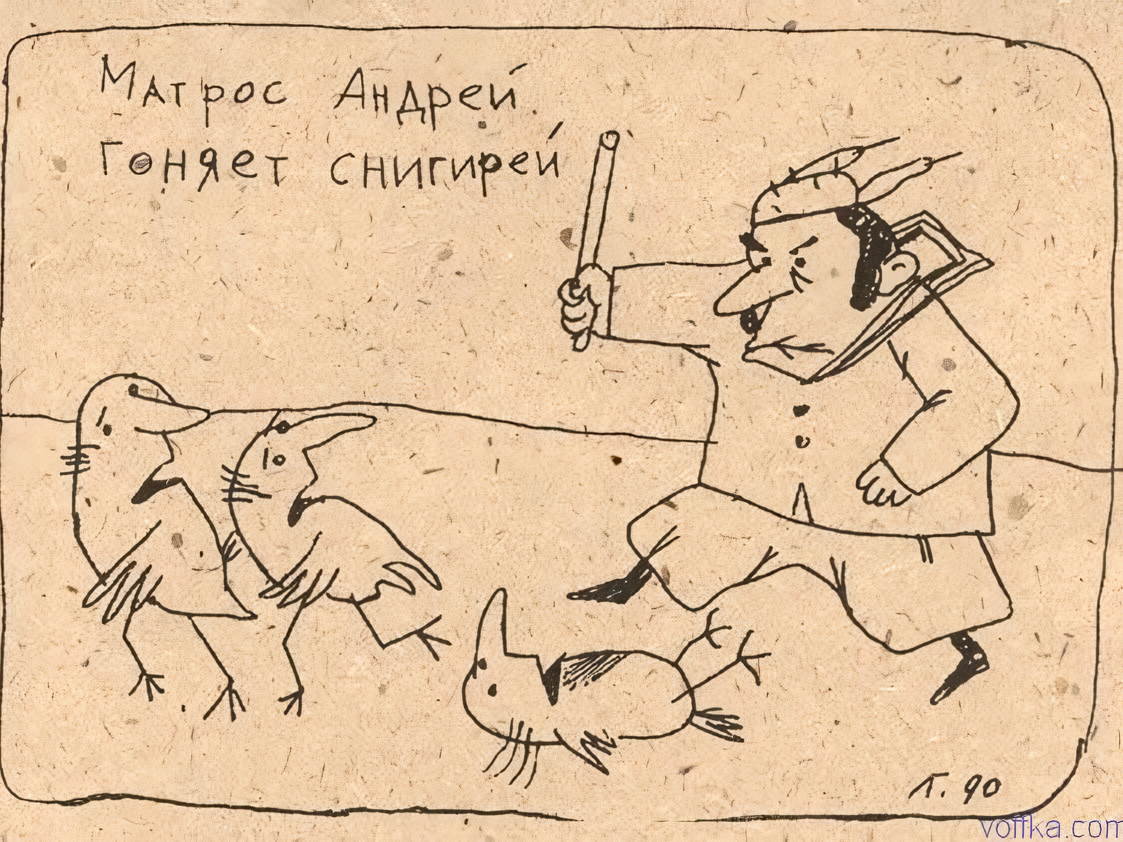 Матрос Андрей
Гоняет снигирей
Г. 90
voffka.com